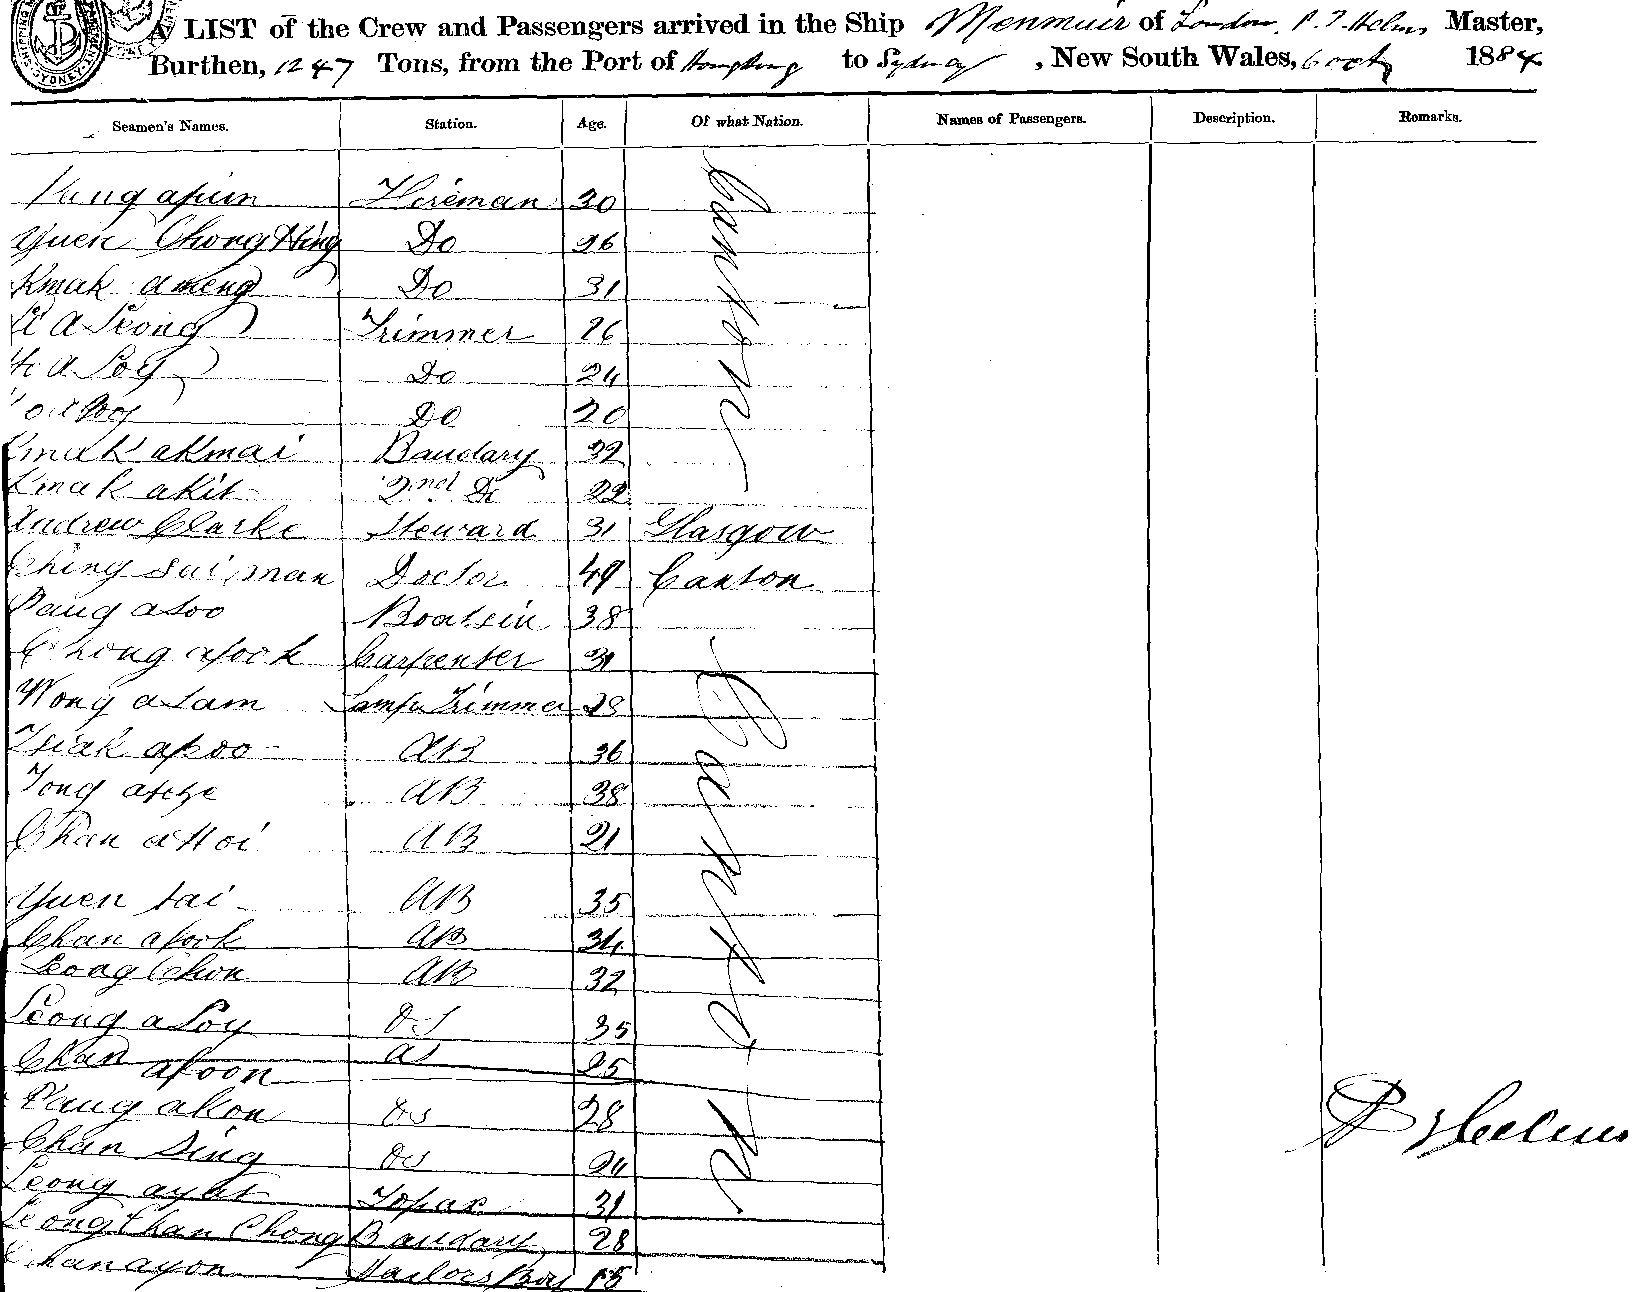 A LIST of the Crew and Passengers arrived in the Ship Menmuir of London, P. T. Helms Master,
Burthen, 1247 Tons, from the Port of Hongkong to Sydney, New South Wales, 6 Octr 1884
Seamen's Names. Station. Age. Of what Nation. Names of Passengers. Description. Remarks.
apun Fireman 30 Canton
Yuen Chong Hing Do 26
Kmak ameng Do 31
a Leong Trimmer 26
a Loy Do 24
Do 20
Kmak akmai Baudary 32
Kmak akit 2nd Do 22
Andrew Clarke Steward 31 Glasgow
Ching Sui man Doctor 49 Canton
Paug asoo Boatsin 38
Chong afook Carpenter 31 Canton
Wong asam Lamp Trimmer 28
Tsiak apoo AB 36
Tong AB 38
Chan aHoi AB 21
Yuen tai AB 35
Chan afook AB 34
Leong Chon AB 32
Leong a Loy OS 35
Chan afoon OS 25
Paug akon OS 28
Chan Sing OS 24
P Helms
Leong ayat Topax 31
Leong Chan Chong Baudary 28
Chanayon Sailors Boy 15